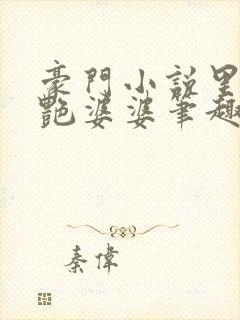 豪門小說里
艷婆婆筆趣
秦偉